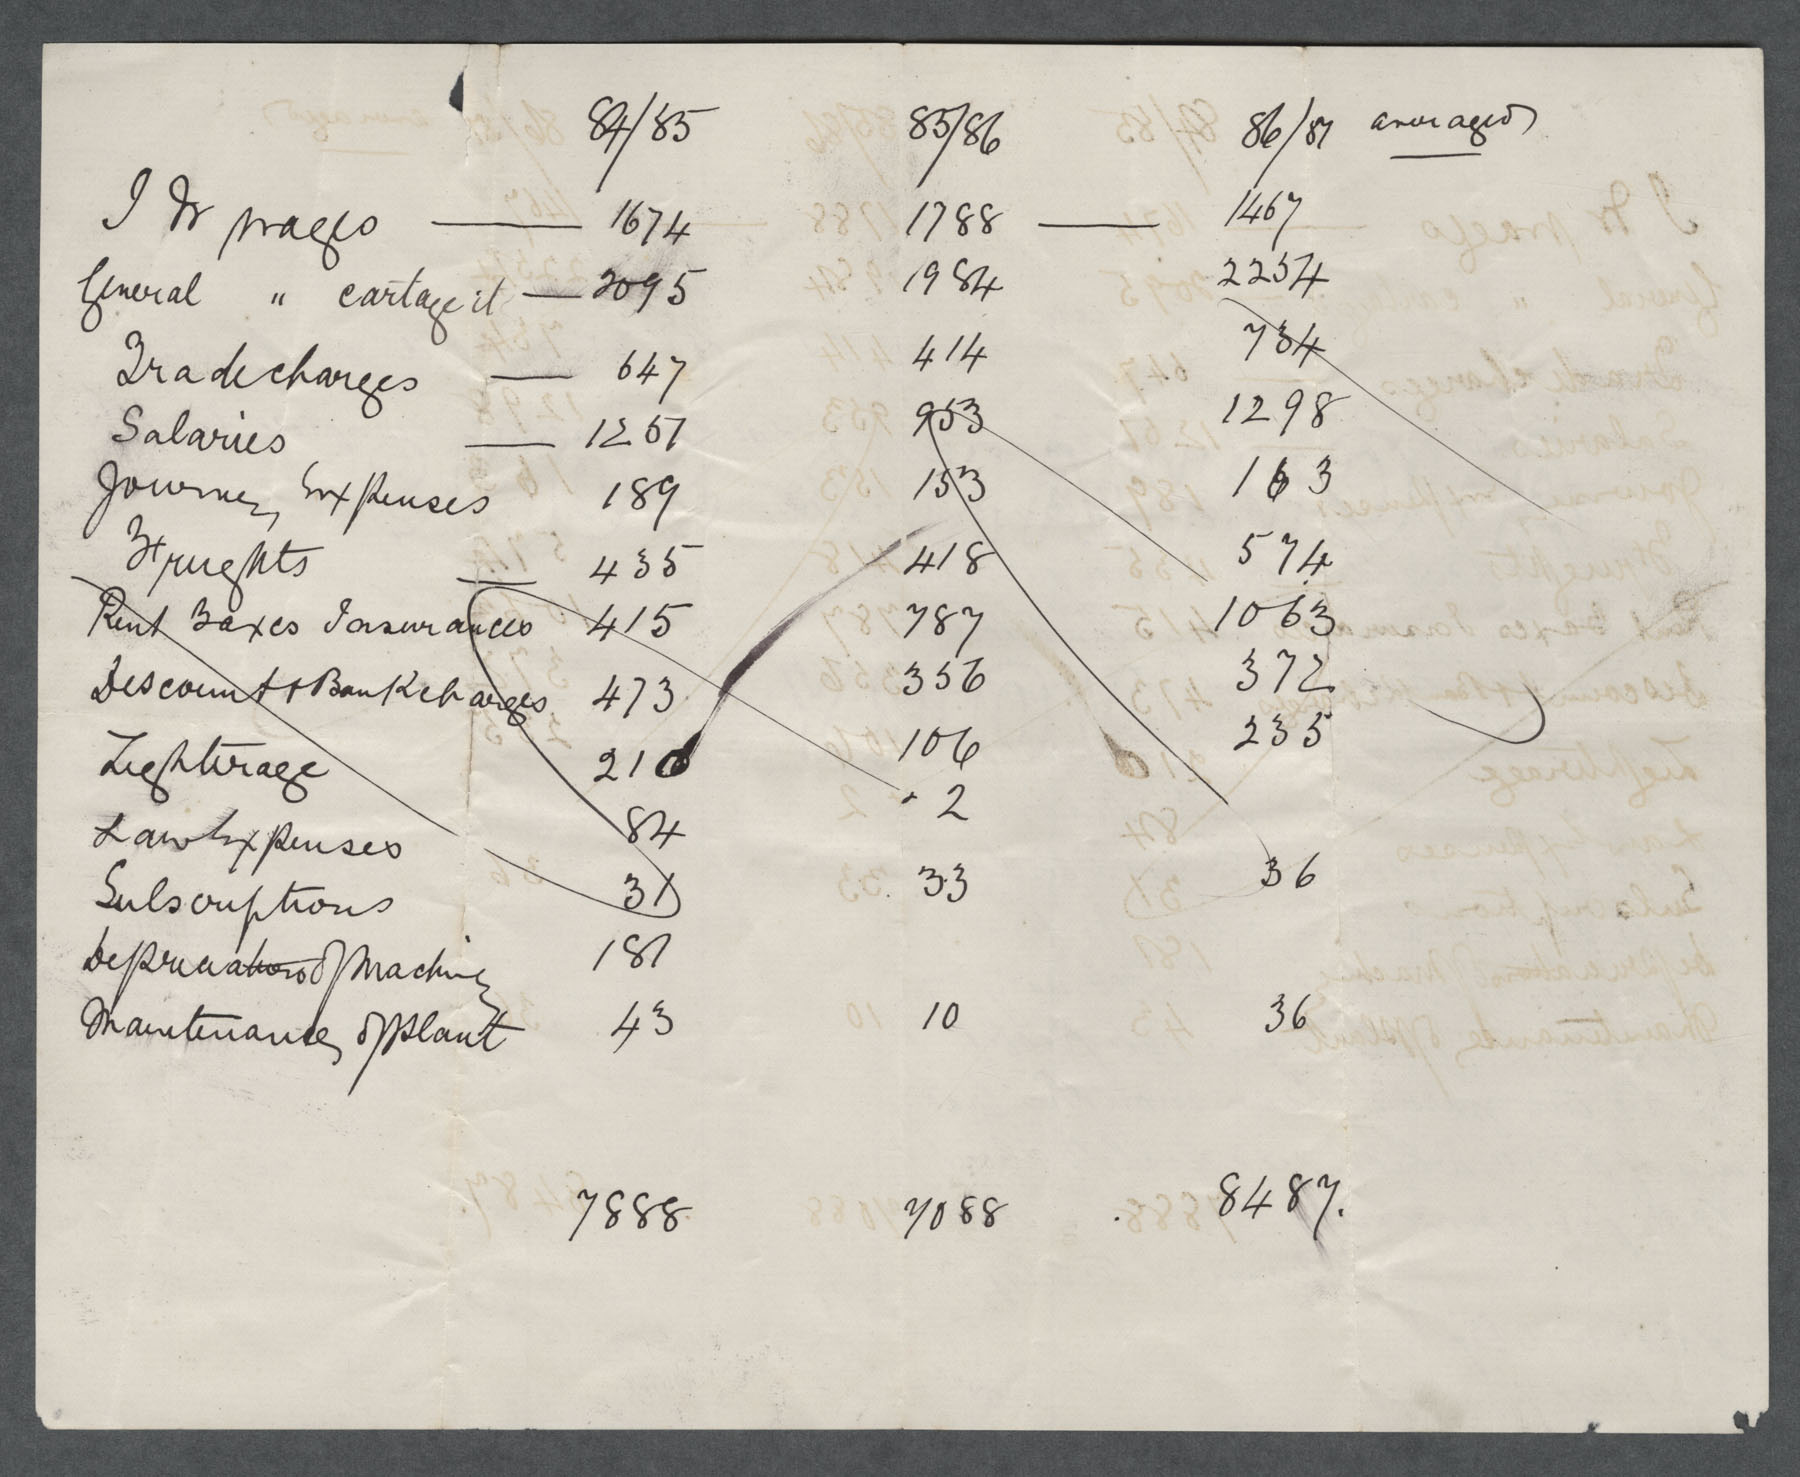 84/85 85/86 86/87 averaged
I W wages — 1674 1788 — 1467
General " cartage &t — 2095 1984 2254
Trade charges — 647 414 734
Salaries — 1257 953 1298
Journey Expenses 189 153 163
Freights — 435 418 574
Rent Taxes Insurances 415 787 1063
Discount & Bank charges 473 356 372
Lighterage 210 106 235
Law Expenses 84 2
Subscriptions 31 33 36
Depreciation of Machinery 187
Maintenance of plant 43 10 36
7888 7088 8487.